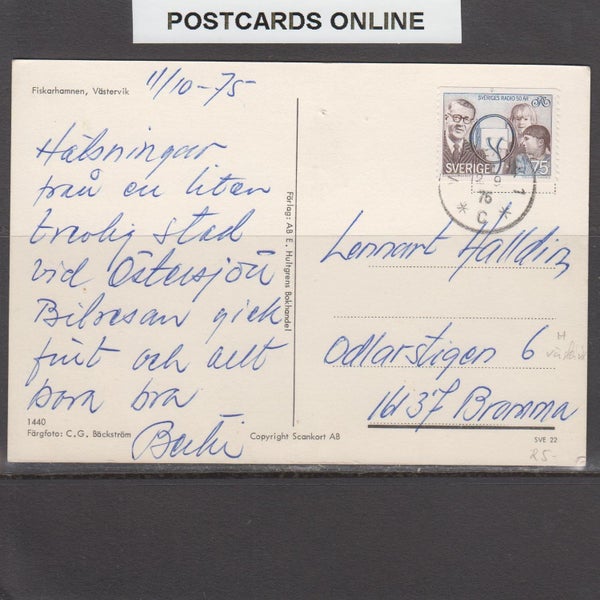 POSTCARDS ONLINE
Fiskarhamnen, Västervik
11/10-75
Hälsningar
från en liten
trevlig stad
vid Östersjön
Bilresan gick
fint och allt
bara bra
1440
Färgfoto: C. G. Bäckström
Förlag: AB E. Hultgrens Bokhandel
Copyright Scankort AB
SVERIGES RADIO 50 ÅR
SVERIGE
75
75
* C *
1
Lennart Halldin
Odlarstigen 6
16137 Bromma
SVE 22
25-